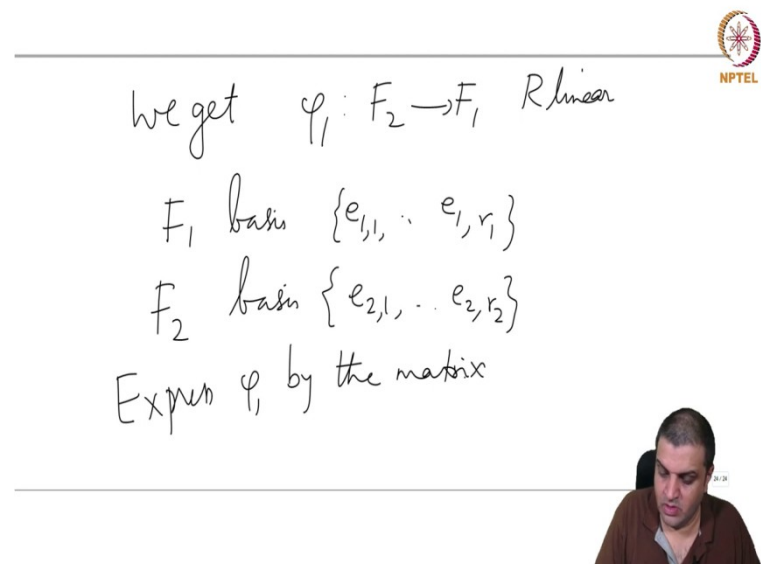 NPTEL
We get φ₁ : F₂ → F₁ R linear
F₁ basis {e₁,₁, .. e₁,r₁}
F₂ basis {e₂,₁, .. e₂,r₂}
Express φ₁ by the matrix
24 / 24